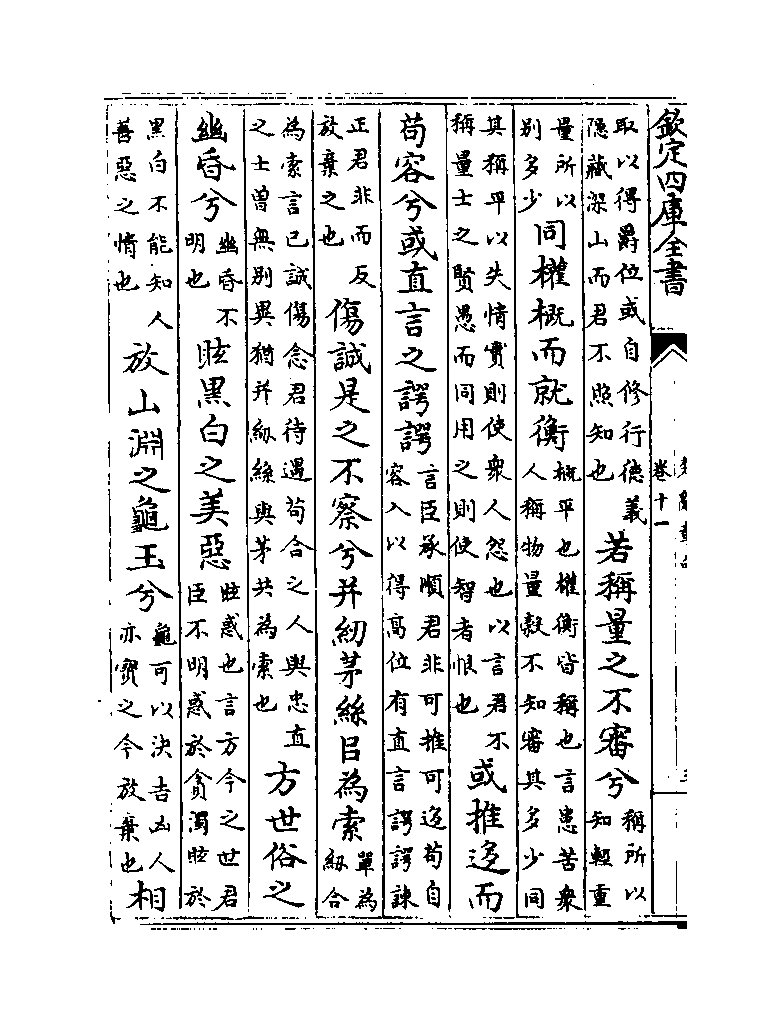 欽定四庫全書
卷十一
取以得爵位或自修行德義隱藏深山而君不照知也若稱量之不審兮稱所以知輕重
量所以別多少同權概而就衡概平也權衡皆稱也言患苦衆人稱物量穀不知審其多少同
其稱平以失情實則使衆人怨也以言君不稱量士之賢愚而同用之則使智者恨也或推迻而
苟容兮或直言之諤諤言臣承順君非可推可迻苟自容入以得高位有直言諤諤諫
正君非而反放棄之也傷誠是之不察兮并紉茅絲㠯為索單為紉合
為索言已誠傷念君待遇苟合之人與忠直之士曾無別異猶并紉絲與茅共為索也方世俗之
幽昏兮幽昏不明也眩黑白之美惡眩惑也言方今之世君臣不明惑於貪濁眩於
黑白不能知人善惡之情也放山淵之龜玉兮龜可以決吉凶人亦寳之今放棄也相